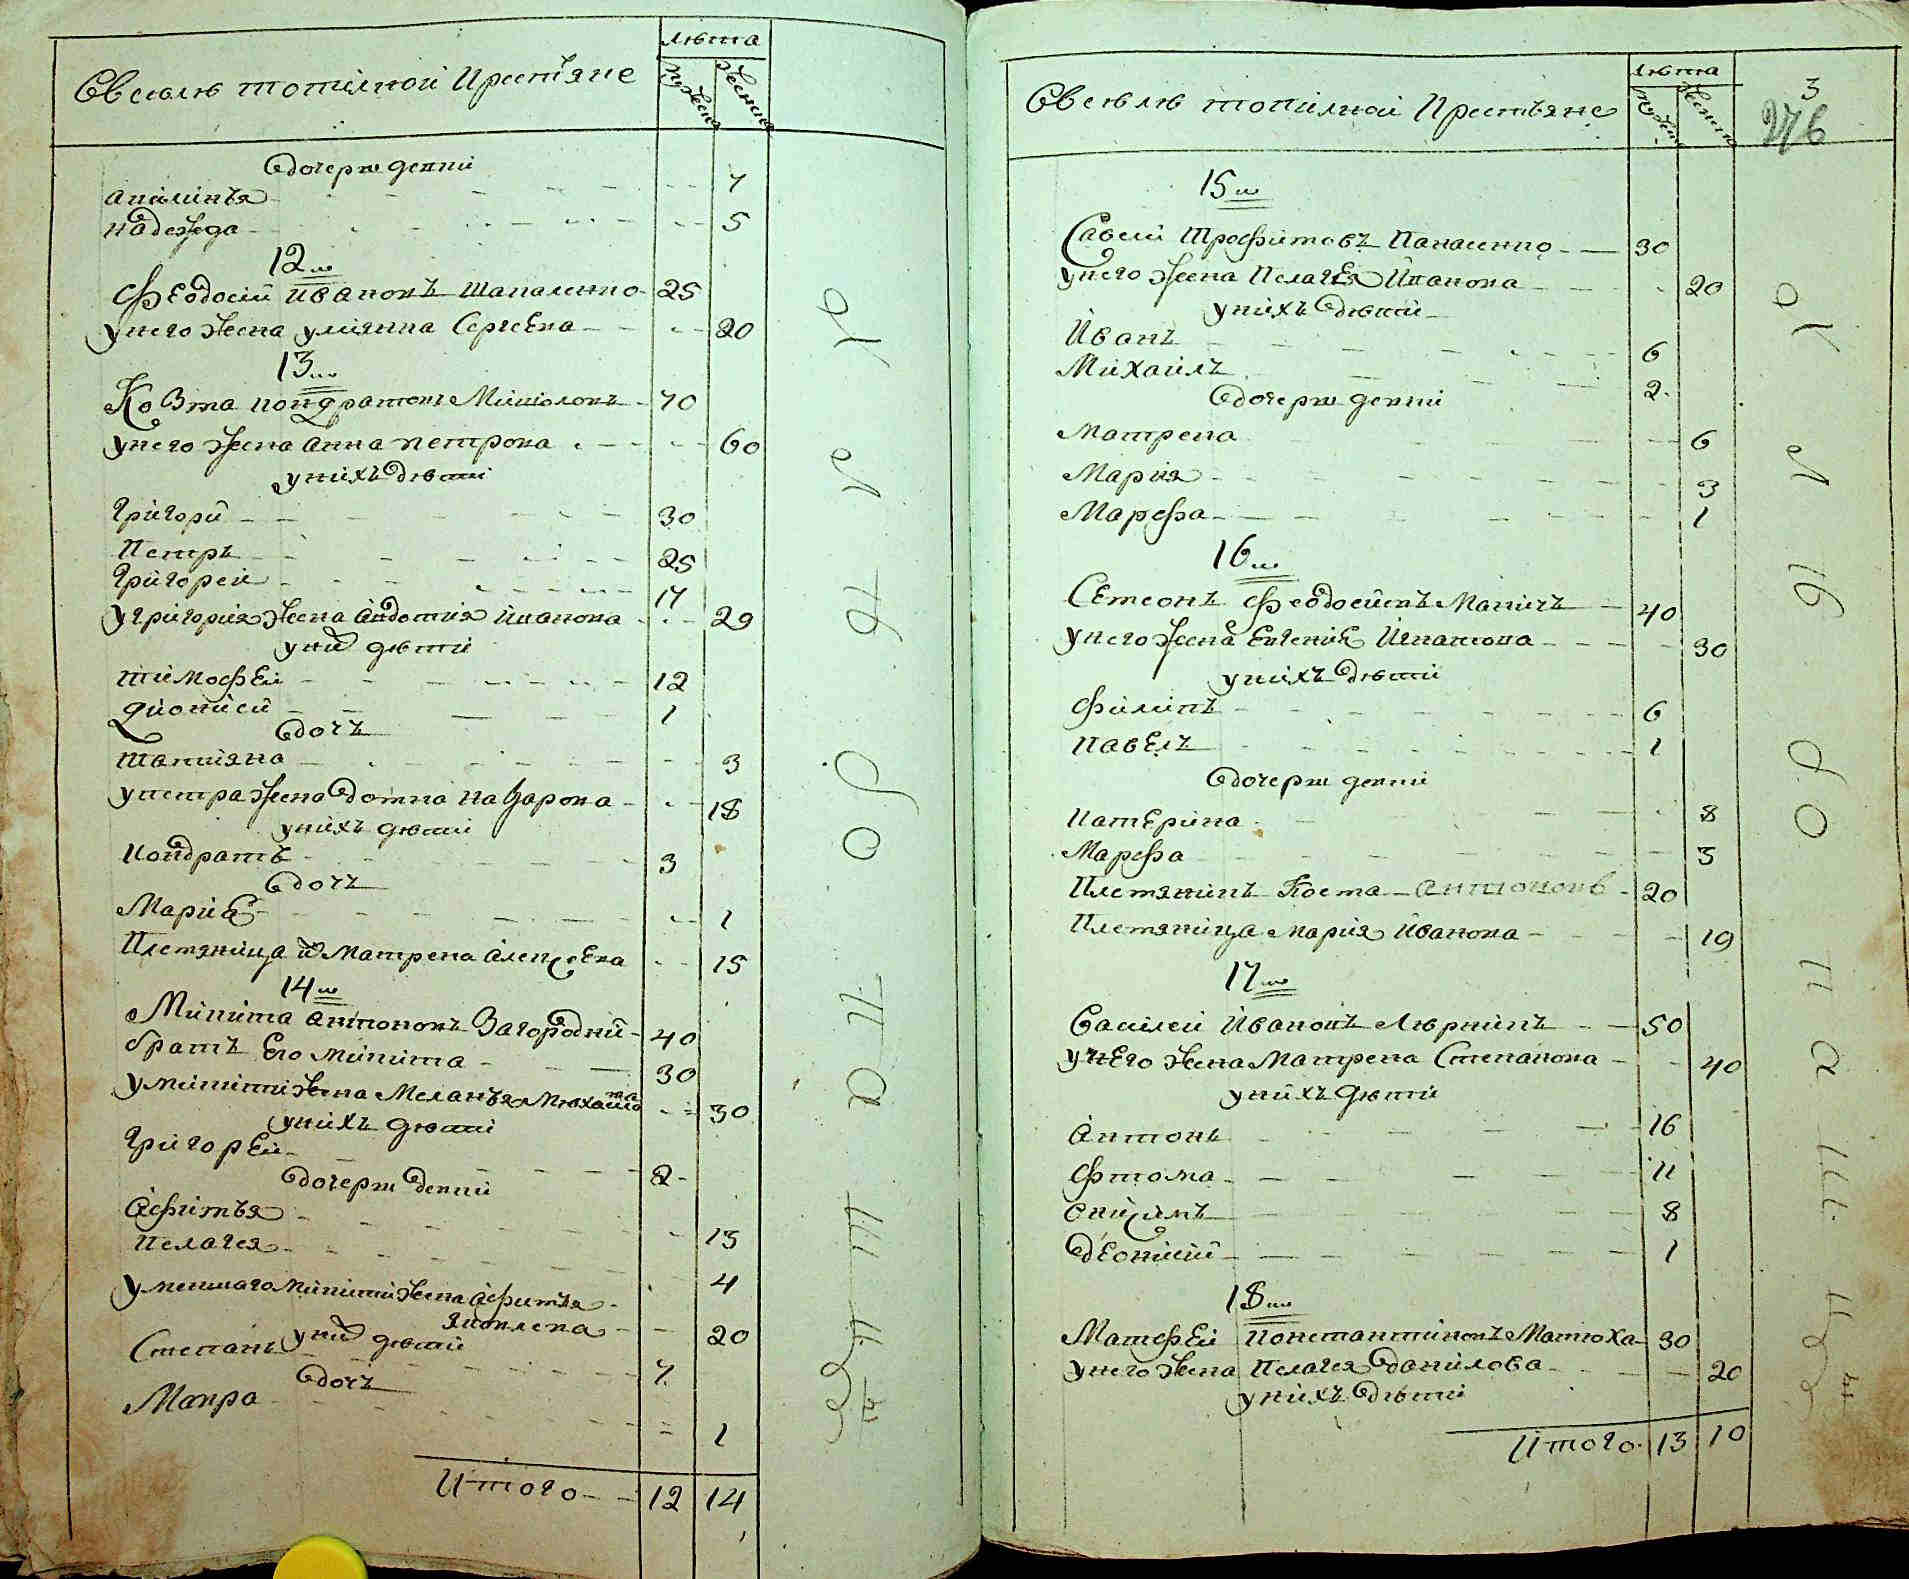 Всѣлѣ топилной крестьяне
лѣта
мужеска
женска
дочерни дети
акилинья 7
надежда 5
12ш
Феодосий ивановъ шапаленко 25
у него жена улиянна Сергѣева 20
13ш
Козма кондратовъ 70
у него жена анна петрова 60
у нихъ дѣти
григорий 30
Петръ 25
григорей 17
у григория жена авдотия иванова 29
у них дѣти
тимофей 12
дионисий 1
дочь
татияна 3
у петра жена домна назарова 18
у нихъ дѣти
кондратъ 3
дочь
Мария 1
Племяница их матрена алексѣева 15
14ш
Микита антоновъ Загородний 40
братъ его микита 30
у микити жена Меланъя михайлова 30
у нихъ дѣти
григорей 2
дочерни дети
афимъя 13
пелагея 4
у меншаго микити жена афимъя
яковлева 20
у них дѣти
Степанъ 7
дочь
Мавра 1
Итого 12 14
Всѣлѣ топилной крестьяне
лѣта
мужеска
женска
3
276
15ш
Савелий трофимовъ Панасенко 30
у него жена Пелагея иванова 20
у нихъ дѣти
Иванъ 6
Михаилъ 2
дочерни дети
матрена 6
Мария 3
Марфа 1
16ш
Семеонъ феодосиевъ 40
у него жена евгения игнатова 30
у нихъ дѣти
филипъ 6
павелъ 1
дочерни дети
катерина 8
Марфа 3
Племяникъ Косма антоновъ 20
Племяница мария иванова 19
17ш
василей ивановъ 50
у него жена матрена Степанова 40
у нихъ дѣти
антонъ 16
фтома 11
онисимъ 8
деонисий 1
18ш
Матфей константиновъ Матюха 30
у него жена пелагея данилова 20
у нихъ дѣти
Итого 13 10